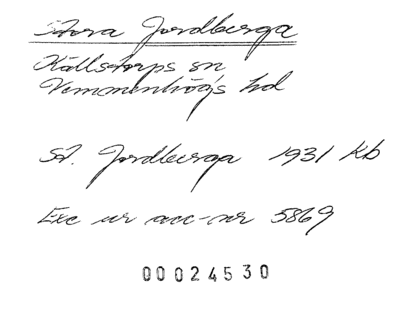 Stora Jordberga
Källstorps sn
Vemmenhögs hd
St. Jordberga 1931 kb
Exc ur acc-nr 5869
00024530